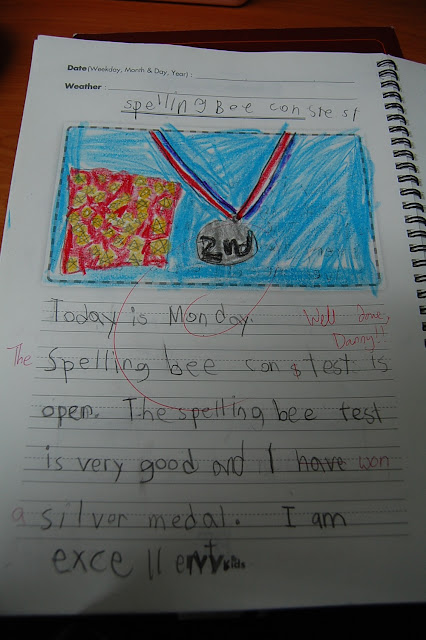 Date (Weekday, Month & Day, Year) :
Weather :
spelling Bee constest
2nd
Today is Monday.
Well done,
Danny!!
The Spelling bee constest is
open. The spelling bee test
is very good and I have won
a silver medal. I am
excellent
kids